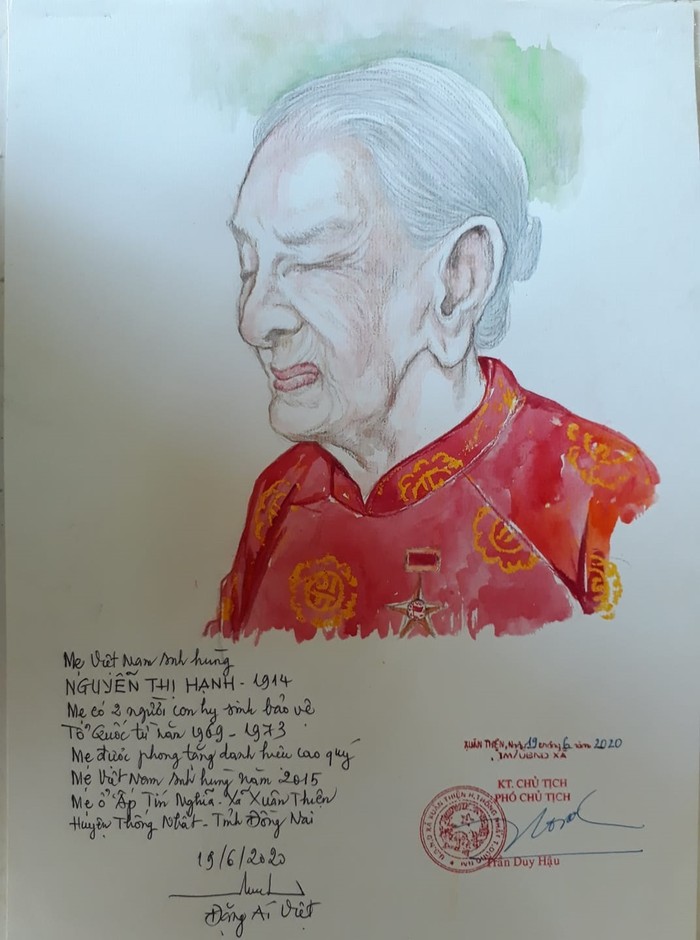 Mẹ Việt Nam anh hùng
NGUYỄN THỊ HẠNH - 1914
Mẹ có 2 người con hy sinh bảo vệ
Tổ Quốc từ năm 1969 - 1973
Mẹ được phong tặng danh hiệu cao quý
Mẹ Việt Nam anh hùng năm 2015
Mẹ ở Ấp Tín Nghĩa - Xã Xuân Thiện
Huyện Thống Nhất - Tỉnh Đồng Nai
19/6/2020
Đặng Ái Việt
XUÂN THIỆN, Ngày 19 tháng 6 năm 2020
TM/UBND XÃ
KT. CHỦ TỊCH
PHÓ CHỦ TỊCH
Trần Duy Hậu